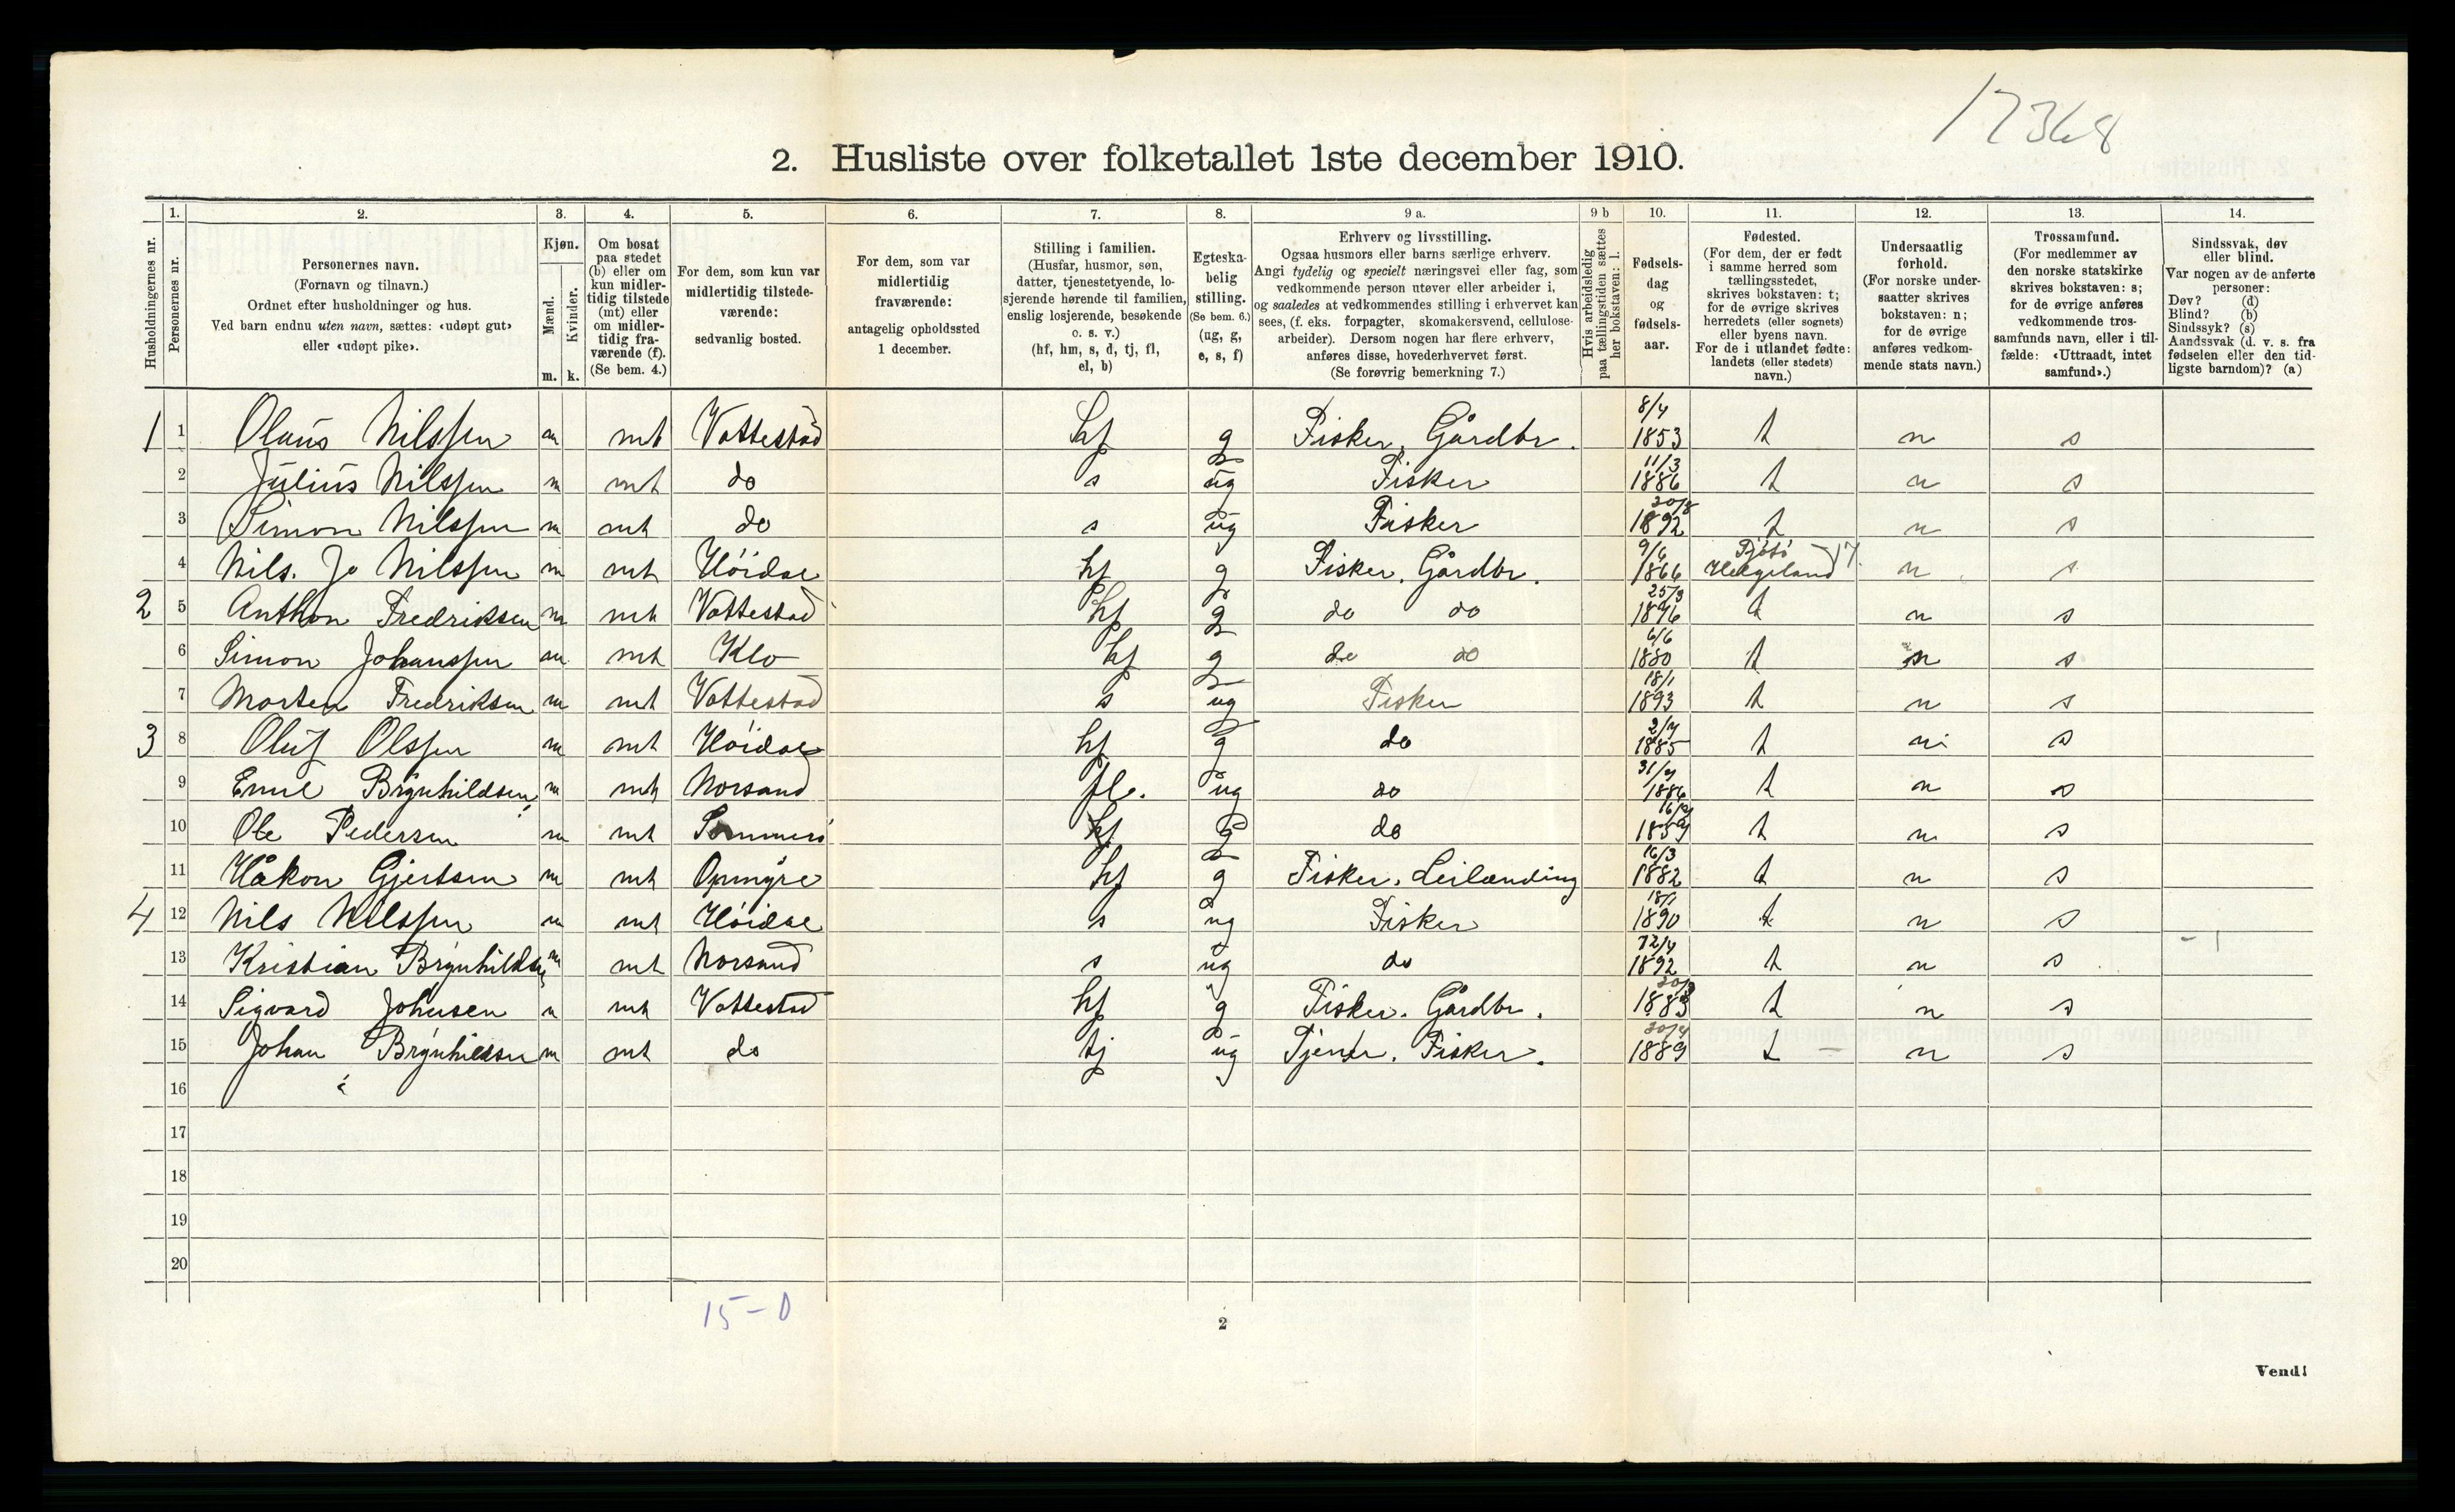 17368
2. Husliste over folketallet 1ste december 1910.
Husholdningernes nr.
1. Personernes nr.
2. Personernes navn.
(Fornavn og tilnavn.)
Ordnet efter husholdninger og hus.
Ved barn endnu uten navn, sættes: «udøpt gut»
eller «udøpt pike».
3. Kjøn.
Mænd. Kvinder.
m. k.
4. Om bosat
paa stedet
(b) eller om
kun midler-
tidig tilstede
(mt) eller
om midler-
tidig fra-
værende (f).
(Se bem. 4.)
5. For dem, som kun var
midlertidig tilstede-
værende:
sedvanlig bosted.
6. For dem, som var
midlertidig
fraværende:
antagelig opholdssted
1 december.
7. Stilling i familien.
(Husfar, husmor, søn,
datter, tjenestetyende, lo-
sjerende hørende til familien,
enslig losjerende, besøkende
o. s. v.)
(hf, hm, s, d, tj, fl,
el, b)
8. Egteska-
belig
stilling.
(Se bem. 6.)
(ug, g,
e, s, f)
9 a. Erhverv og livsstilling.
Ogsaa husmors eller barns særlige erhverv.
Angi tydelig og specielt næringsvei eller fag, som
vedkommende person utøver eller arbeider i,
og saaledes at vedkommendes stilling i erhvervet kan
sees, (f. eks. forpagter, skomakersvend, cellulose-
arbeider). Dersom nogen har flere erhverv,
anføres disse, hovederhvervet først.
(Se forøvrig bemerkning 7.)
9 b Hvis arbeidsledig
paa tællingstiden sættes
her bokstaven: l.
10. Fødsels-
dag
og
fødsels-
aar.
11. Fødested.
(For dem, der er født
i samme herred som
tællingsstedet,
skrives bokstaven: t;
for de øvrige skrives
herredets (eller sognets)
eller byens navn.
For de i utlandet fødte:
landets (eller stedets)
navn.)
12. Undersaatlig
forhold.
(For norske under-
saatter skrives
bokstaven: n;
for de øvrige
anføres vedkom-
mende stats navn.)
13. Trossamfund.
(For medlemmer av
den norske statskirke
skrives bokstaven: s;
for de øvrige anføres
vedkommende tros-
samfunds navn, eller i til-
fælde: «Uttraadt, intet
samfund».)
14. Sindssvak, døv
eller blind.
Var nogen av de anførte
personer:
Døv? (d)
Blind? (b)
Sindssyk? (s)
Aandssvak (d. v. s. fra
fødselen eller den tid-
ligste barndom)? (a)
1 1 Olaus Nilssen m mt Vottestad hf g Fisker, Gårdbr. 8/4 1853 t n s
2 Julius Nilssen m mt do s ug Fisker 11/3 1886 t n s
3 Simon Nilssen m mt do s ug Fisker 20/8 1892 t n s
4 Nils. Jo Nilssen m mt Høidal hf g Fisker. Gårdbr. 9/6 1866 Tjøtø Helgeland 17 n s
2 5 Anthon Fredriksen m mt Vottestad hf g do do 25/3 t n s
6 Simon Johanssen m mt Klo hf g do do 6/6 1880 t n s
7 Morten Fredriksen m mt Vottestad s ug Fisker 18/1 1893 t n s
3 8 Oluf Olssen m mt Høidal hf g do 2/4 1885 t n s
9 Emil Brynhildsen m mt Norsand fl. ug do 1886 t n s
10 Ole Pedersen m mt Sommerø hf g do 1859 t n s
11 Håkon Gjertsen m mt Opmyre hf g Fisker. Leilænding 16/3 1882 t n s
4 12 Nils Nilssen m mt Høidal s ug Fisker 1890 t n s
13 Kristian Brynhildsen m mt Norsand s ug do 12/4 1892 t n s
14 Sigvard Johnsen m mt Vottestad hf g Fisker. Gårdbr. 1883 t n s
15 Johan Brynhildsen m mt do tj ug Tjener. Fisker. 20/4 1889 t n s
16
17
18
19
20
15-0
2
Vend!